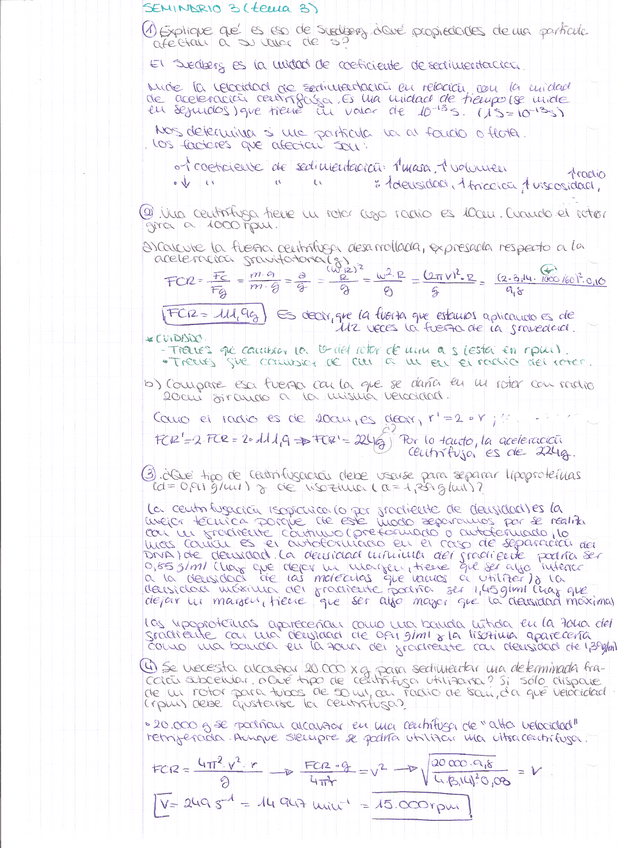 SEMINARIO 3 (tema 3)
① Explique qué es eso de Svedberg ¿Qué propiedades de una partícula
afectan a su valor de s?
El Svedberg es la unidad de coeficiente de sedimentación.
Mide la velocidad de sedimentación en relación con la unidad
de aceleración centrífuga. Es una unidad de tiempo (se mide
en segundos) que tiene un valor de 10⁻¹³ s. (1S = 10⁻¹³ s)
Nos determina si una partícula va al fondo o flota.
Los factores que afectan son:
• ↑ coeficiente de sedimentación: ↑ masa, ↑ volumen
• ↓ " " " : ↑ densidad, ↑ fricción, ↑ viscosidad, ↑ radio
② Una centrífuga tiene un rotor cuyo radio es 10cm. Cuando el rotor
gira a 1000 rpm.
a) Calcule la fuerza centrífuga desarrollada, expresada respecto a la
aceleración gravitatoria (g)
FCR = Fc/Fg = m·a/m·g = a/g = (w·R)²/R/g = w²·R/g = (2πv)²·R/g = (2·3,14·1000/60)²·0,10/9,8
FCR = 111,9g Es decir, que la fuerza que estamos aplicando es de
112 veces la fuerza de la gravedad.
* CUIDADO:
- Tienes que cambiar la v del rotor de min a s (está en rpm).
• Tienes que cambiar de cm a m en el radio del rotor.
b) Compare esa fuerza con la que se daría en un rotor con radio
20cm girando a la misma velocidad.
Como el radio es de 20cm, es decir, r' = 2·r;
FCR' = 2·FCR = 2·111,9 ⇒ FCR' = 224g Por lo tanto, la aceleración
centrífuga es de 224g.
③ ¿Qué tipo de centrifugación debe usarse para separar lipoproteínas
(d = 0,91 g/ml) y de lisozima (d = 1,39 g/ml)?
La centrifugación isopícnica (o por gradiente de densidad) es la
mejor técnica porque de este modo separamos por se realiza
con un gradiente continuo (preformado o autoformado, lo
más común es el autoformado en el caso de separación del
DNA) de densidad. La densidad mínima del gradiente podría ser
0,85 g/ml (hay que dejar un margen, tiene que ser algo inferior
a la densidad de las moléculas que vamos a utilizar) y la
densidad máxima del gradiente podría ser 1,45 g/ml (hay que
dejar un margen, tiene que ser algo mayor que la densidad máxima)
Las lipoproteínas aparecerían como una banda nítida en la zona del
gradiente con una densidad de 0,91 g/ml y la lisozima aparecería
como una banda en la zona del gradiente con densidad de 1,39 g/ml
④ Se necesita alcanzar 20.000 x g para sedimentar una determinada fra-
cción subcelular. ¿Qué tipo de centrífuga utilizaría? Si sólo dispone
de un rotor para tubos de 50 ml, con radio de 8cm, ¿a qué velocidad
(rpm) debe ajustarse la centrífuga?
• 20.000 g se podrían alcanzar en una centrífuga de "alta velocidad"
refrigerada. Aunque siempre se podría utilizar una ultracentrífuga.
FCR = 4π²·v²·r/g → FCR·g/4π²r = v² → √20.000·9,8/4·(3,14)²·0,08 = v
V = 249 s⁻¹ = 14.947 min⁻¹ = 15.000 rpm